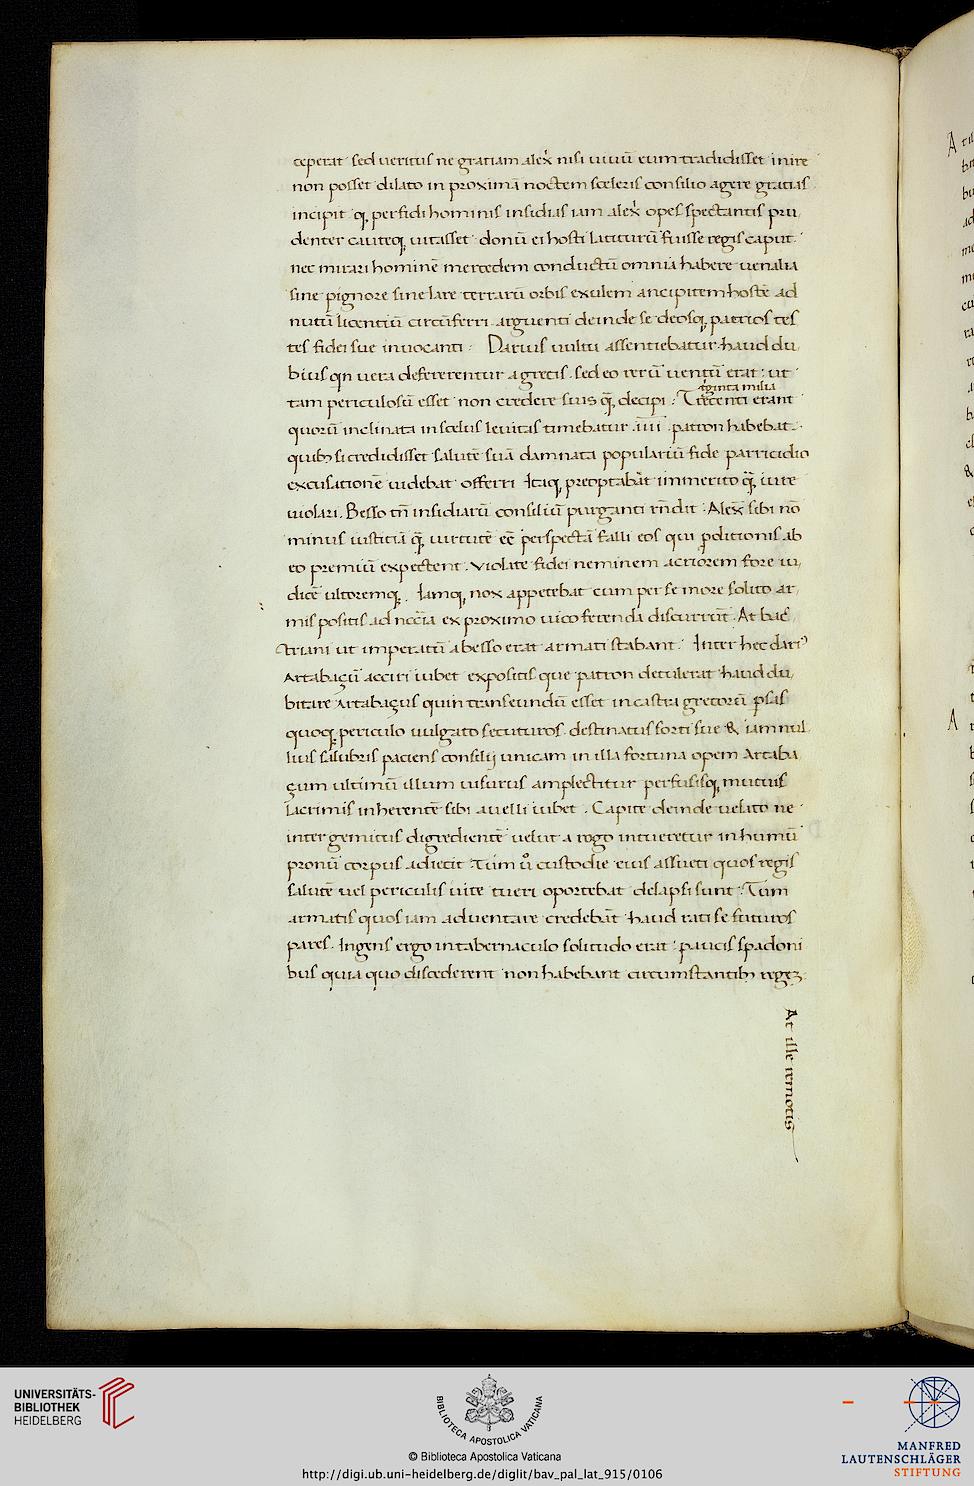 ceperat sed ueritus ne gratiam alex̄ nisi uiuū eum tradidisset inire
non posset dilato in proximā noctem sceleris consilio agere gratias
incipit q. perfidi hominis insidias iam alex̄ opes spectantis pru
denter cauteq. uitasset donū ei hosti laturū fuisse regis caput.
nec mirari hominē mercedem conductū omnia habere uenalia
sine pignore sine lare terrarū orbis exulem ancipitem hostē ad
nutū licentiū circūferri. arguenti deinde se deosq. patrios tes
tes fidei sue inuocanti. Darius uultu assentiebatur haud du
bius qn uera deferrentur a grecis. sed eo rerū uentū erat: ut
triginta milia
tam periculosū esset non credere suis quā decipi: Trecenti erant
quorū inclinata in scelus leuitas timebatur .iiii. patron habebat.
quibus si credidisset salutē suā damnata populariū fide parricidio
excusationē uidebat offerri Itaq. preoptabat immerito quā iure
uiolari. Besso tn̄ insidiarū consiliū purganti rn̄dit: Alex̄ sibi nō
minus iustitiā quā uirtutē eē perspectā falli eos qui proditionis ab
eo premiū expectent. Violate fidei neminem acriorem fore iu
dicē ultoremq. Iamq. nox appetebat cum perse more solito ar
mis positis ad nc̄cia ex proximo uico ferenda discurrūt. At bac
triani ut imperatū a besso erat armati stabant. Inter hec dari9
Artabaçū acciri iubet expositis que patron detulerat haud du
bitare Artabaçus quin transeundū esset in castra grecorū psas
quoq. periculo uulgato secuturos. destinatus sorti sue & iam nul
lius salubris paciens consilij unicam in illa fortuna opem Artaba
çum ultimū illum uisurus amplectitur perfusisq. mutuis
lacrimis inherentē sibi auelli iubet. Capite deinde uelato ne
inter gemitus digredientē uelut a rogo intueretur in humū
pronū corpus adiecit Tum ūo custodie eius assueti quos regis
salutē uel periculis uite tueri oportebat delapsi sunt: Tum
armatis quos iam aduentare credebāt haud rati se futuros
pares. Ingens ergo in tabernaculo solitudo erat: paucis spadoni
bus quia quo discederent non habebant circumstantibus regez
At ille remotis
UNIVERSITÄTS-
BIBLIOTHEK
HEIDELBERG
BIBLIOTECA APOSTOLICA VATICANA
© Biblioteca Apostolica Vaticana
http://digi.ub.uni-heidelberg.de/diglit/bav_pal_lat_915/0106
MANFRED
LAUTENSCHLÄGER
STIFTUNG